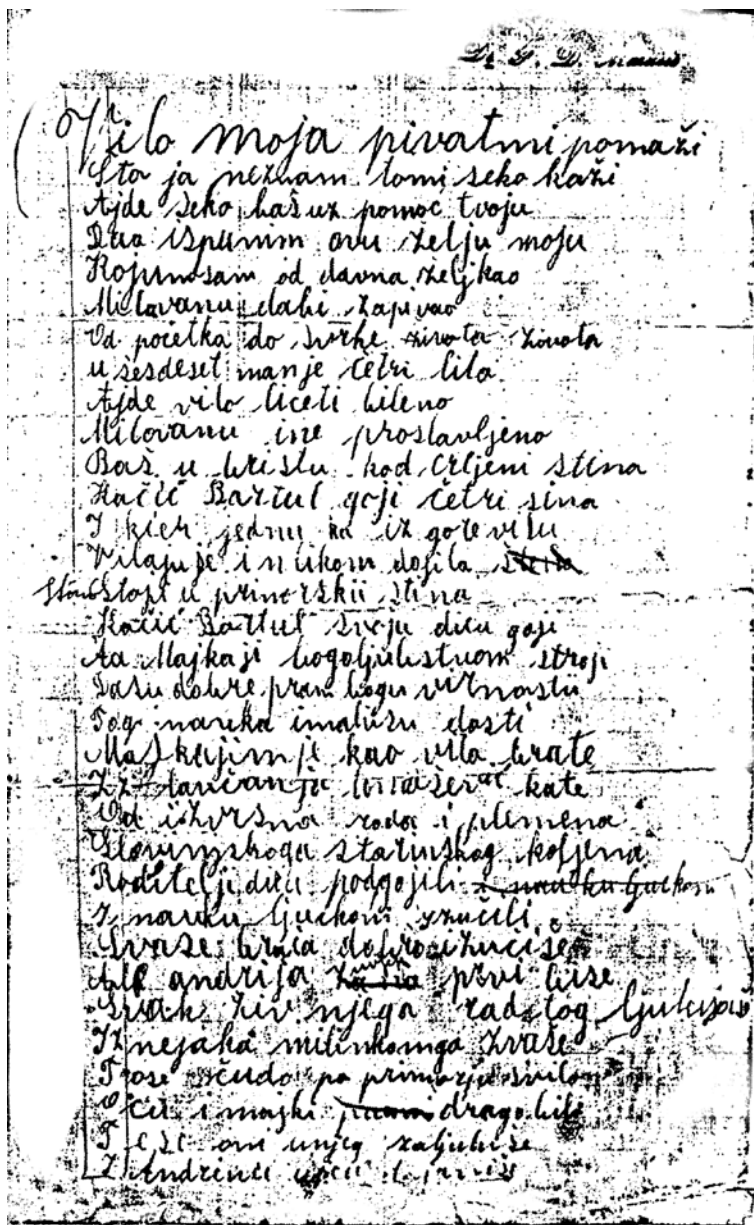 Dr. P. D.
Vilo moja pivatmi pomaži
Što ja neznam tomi seko kaži
Ajde seko baš uz pomoć tvoju
Dua ispunim ovu želju moju
Kojumosam od davna željkao
Milovanu dabi zapivao
Od početka do svrke života života
u šesdeset manje četri lita
Ajde vilo liceti bileno
Milovanu ime proslavljeno
Baš u bristu kod crljeni stina
Kačić Bartul goji četri sina
I kier jednu ka iz gore vilu
Vilajuje i naukom dojila
Stoji u primorskii stina
Kačić Bartul svoju dicu goji
Aa Majkaji bogoljubstvom stroji
Dasu dobre pram bogu virnosti
Tog nauka imalisu dosti
Majkajimje kao vila brate
Iz
kate
Od izvrsna roda i plemena
Slovinjskoga starinskog koljena
Roditelji dicu podgojili i nauku ljuckom
I nauku ljuckom izučili
Svase braća dobro izučiše
Al andrija prvi biše
Svak živ njega radi tog
Iz nejaka milinkomga zvaše
Tose čudo po primorju svilo
Ocu i majki drago bilo
unjeg zaljubise
I Andrinu